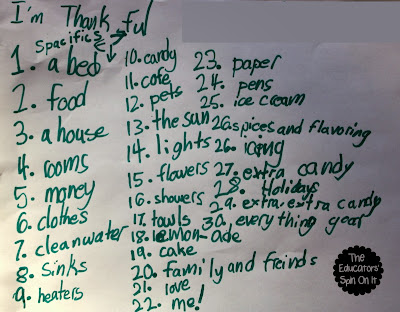 I'm Thankful
Spacifics
1. a bed
2. food
3. a house
4. rooms
5. money
6. clothes
7. cleanwater
8. sinks
9. heaters
10. candy
11. cofe
12. pets
13. the sun
14. lights
15. flowers
16. showers
17. towls
18. lemon-ade
19. cake
20. family and freinds
21. love
22. me!
23. paper
24. pens
25. ice cream
26. spices and flavoring
26. icing
27. extra candy
28. Holidays
29. extra extra candy
30. everything good
The
Educators'
Spin On It